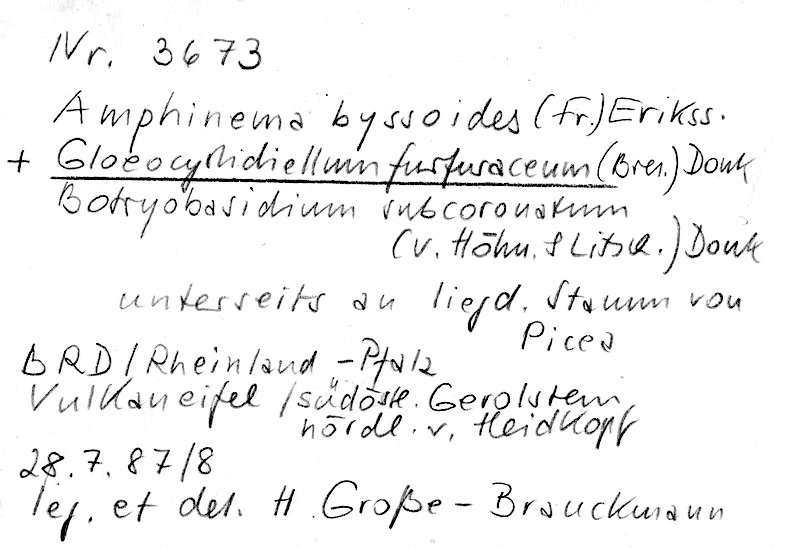 Nr. 3673
Amphinema byssoides (Fr.) Erikss.
+ Gloeocystidiellum furfuraceum (Bres.) Donk
Botryobasidium subcoronatum
(v. Höhn. & Litsch.) Donk
unterseits an liegd. Stamm von
Picea
BRD/Rheinland-Pfalz
Vulkaneifel/südöstl. Gerolstein,
nördl. v. Heidkopf
28.7.87/8
leg. et det. H. Große-Brauckmann